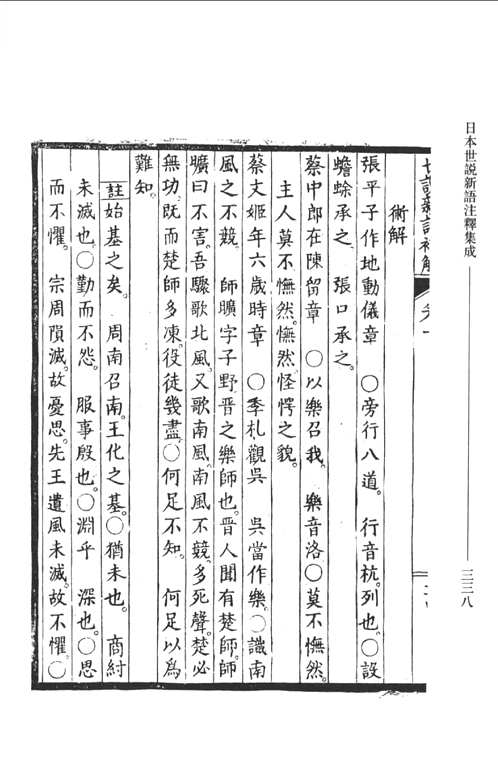 日本世説新語注釋集成
三三八
世説新語補解
術解
張平子作地動儀章　○旁行八道。　行音杭。列也。○設
蟾蜍承之　張口承之。
蔡中郎在陳留章　○以樂召我。　樂音洛○莫不憮然。
主人莫不憮然。憮然怪愕之貌。
蔡文姬年六歲時章　○季札觀吳　吳當作樂。○識南
風之不競　師曠字子野晋之樂師也。晋人聞有楚師。師
曠曰不害。吾驟歌北風。又歌南風。南風不競。多死聲。楚必
無功。既而楚師多凍。役徒幾盡。○何足不知。　何足以爲
難知。
註始基之矣。　周南召南。王化之基。○猶未也。　商紂
未滅也。○勤而不怨。　服事殷也。○淵乎　深也。○思
而不懼。　宗周隕滅。故憂思。先王遺風未滅。故不懼。○